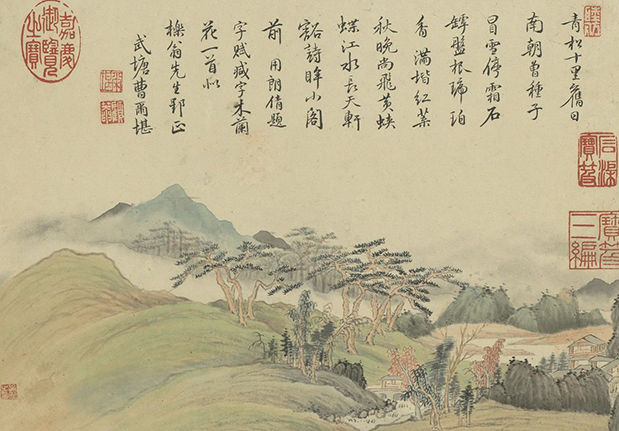 青松十里舊日
南朝曾種子
冒雪停霜石
罅盤根琥珀
香滿堦紅葉
秋晚尚飛黄蛺
蝶江水長天軒
豁詩眸小閣
前 用朗倩題
字賦減字木蘭
花一首似
櫟翁先生郢正
武塘曹爾堪
嘉慶御覽之寶
石渠寶笈
寶笈三編